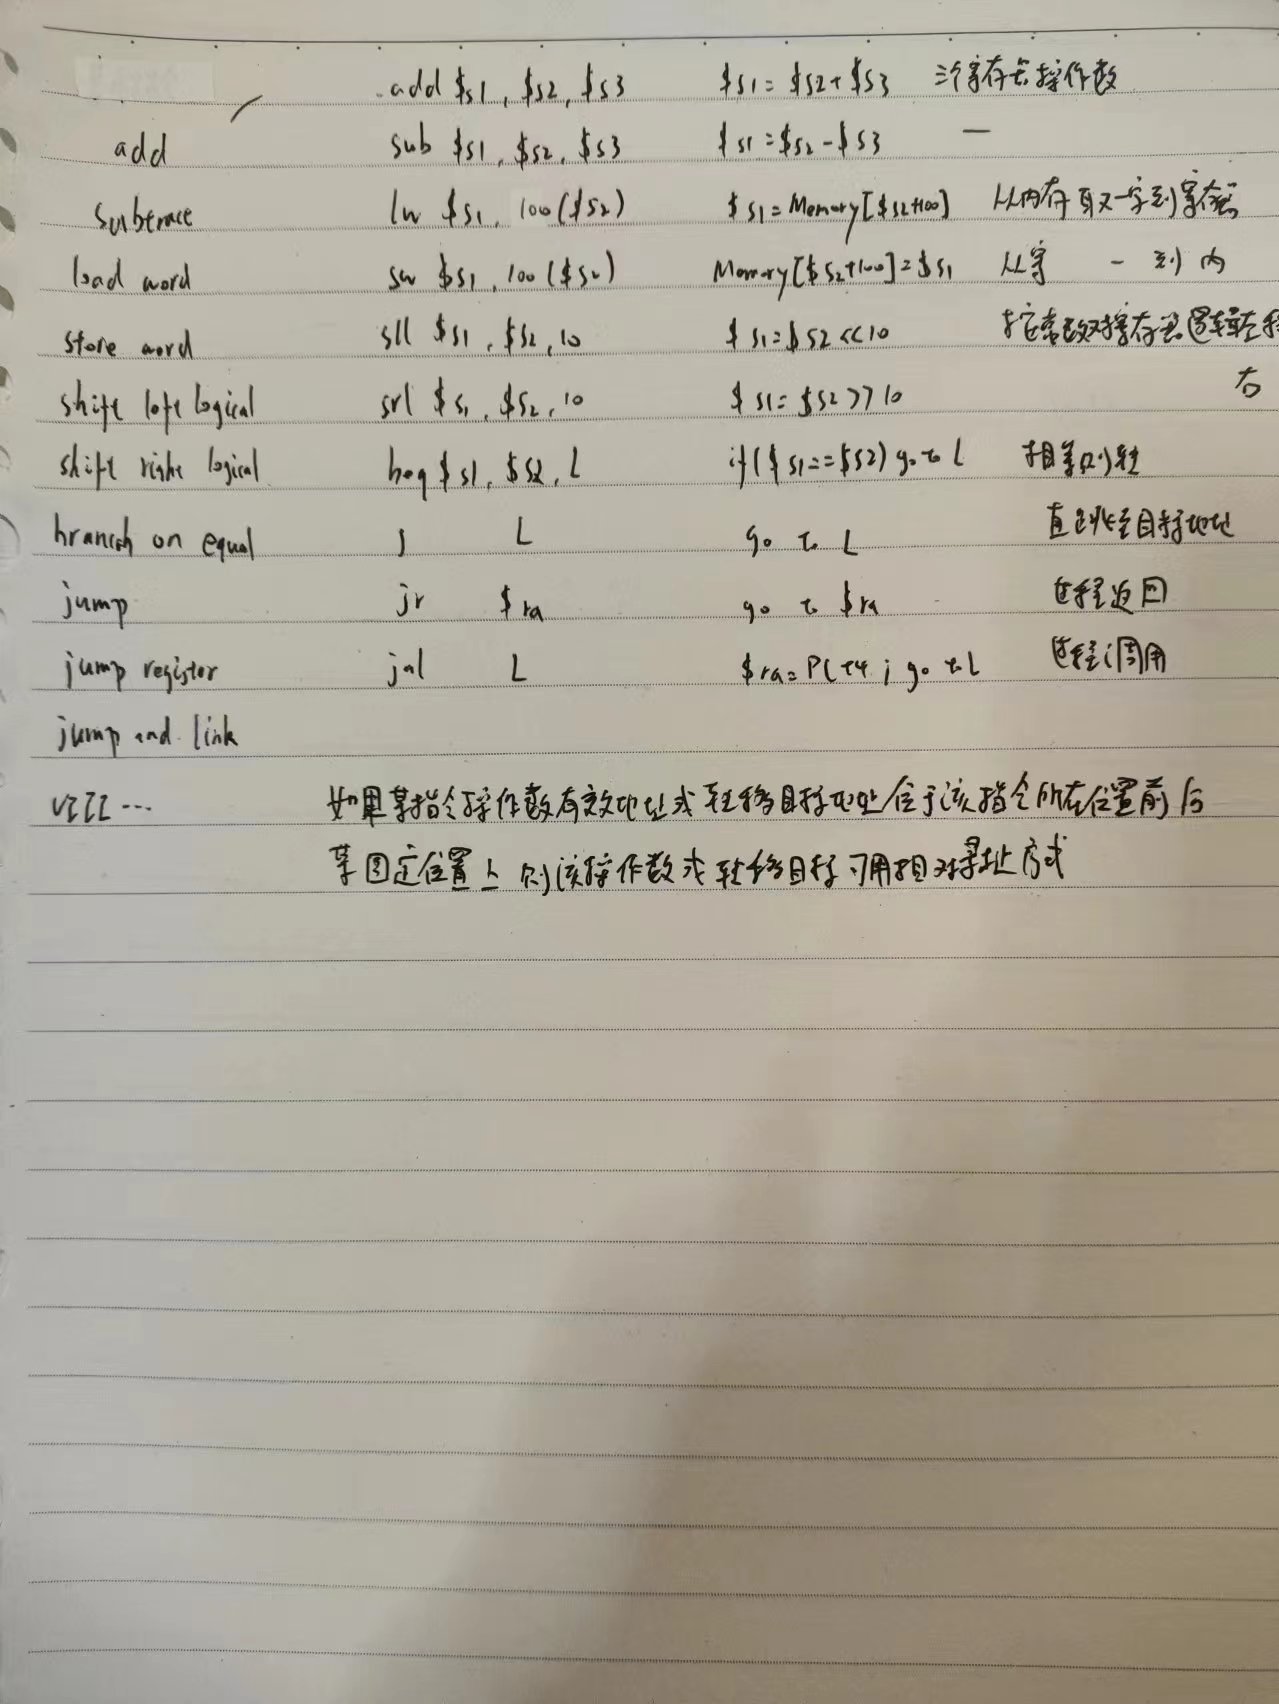 add $s1, $s2, $s3 $s1 = $s2 + $s3 三个寄存器操作数
add sub $s1, $s2, $s3 $s1 = $s2 - $s3 —
lw $s1, 100($s2) $s1 = Memory[$s2+100] 从内存取一字到寄存器
load word sw $s1, 100($s2) Memory[$s2+100] = $s1 从寄 - 到内
store word sll $s1, $s2, 10 $s1 = $s2 << 10 按常数对寄存器逻辑左移
右
shift left logical srl $s1, $s2, 10 $s1 = $s2 >> 10
shift right logical beq $s1, $s2, L if($s1 == $s2) go to L 相等则转
branch on equal j L go to L 直接跳至目标地址
jump jr $ra go to $ra 过程返回
jump register jal L $ra = PC+4; go to L 过程调用
jump and link
如果某指令操作数有效地址或转移目标地址位于该指令所在位置前后
某固定位置上 则该操作数或转移目标可用相对寻址方式